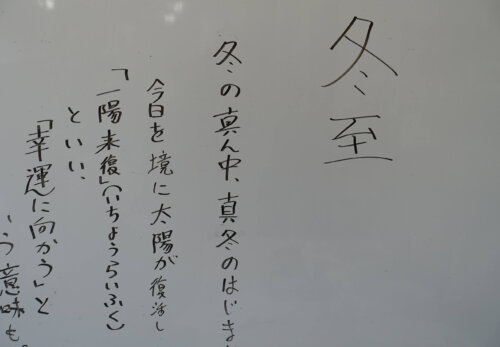 冬至
冬の真ん中、真冬のはじま
今日を境に太陽が復活し
「一陽来復」(いちようらいふく)
といい、
「幸運に向かう」と
う意味も。